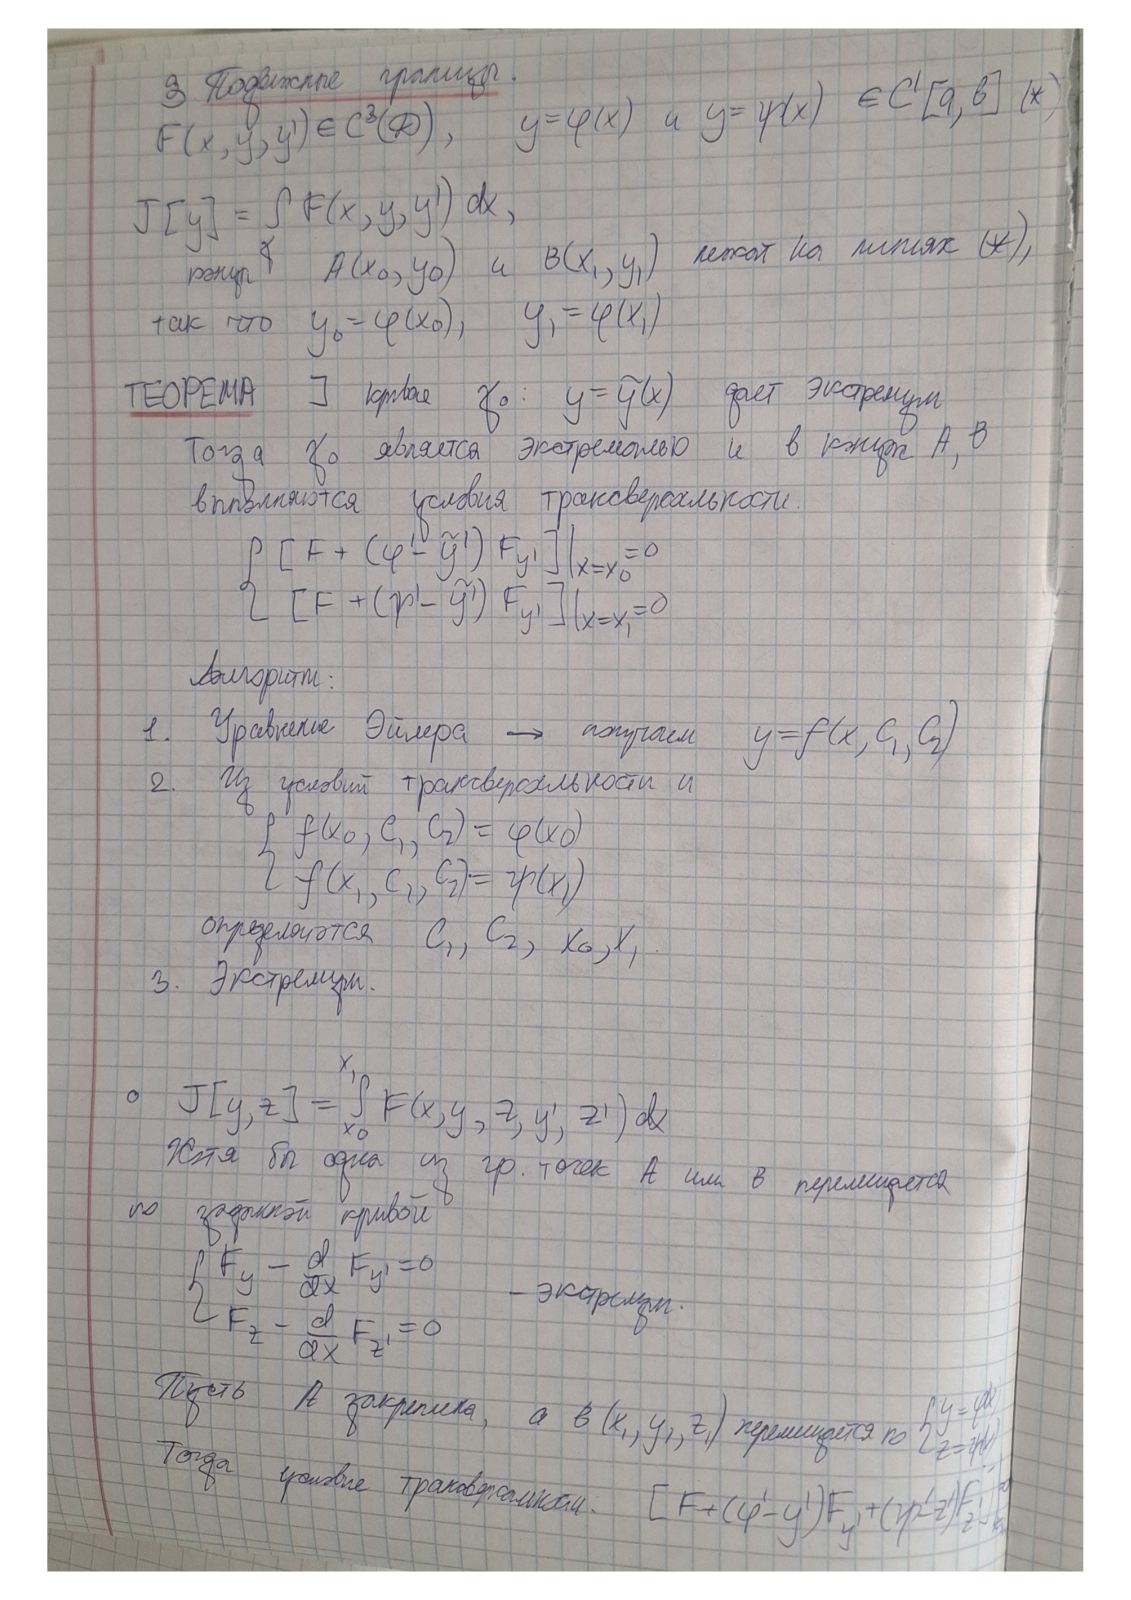 3 Подвижные границы.
F(x, y, y') ∈ C³(D), y = φ(x) и y = ψ(x) ∈ C'[a, b] (*)
J[y] = ∫ F(x, y, y') dx,
γ
концы A(x₀, y₀) и B(x₁, y₁) лежат на линиях (*),
так что y₀ = φ(x₀), y₁ = φ(x₁)
ТЕОРЕМА ] кривая γ₀: y = ỹ(x) дает экстремум
Тогда γ₀ является экстремалью и в концах A, B
выполняются условия трансверсальности.
{ [F + (φ' - ỹ') F_y']|x=x₀ = 0
[F + (ψ' - ỹ') F_y']|x=x₁ = 0
Алгоритм:
1. Уравнение Эйлера → получаем y = f(x, C₁, C₂)
2. Из условий трансверсальности и
{ f(x₀, C₁, C₂) = φ(x₀)
f(x₁, C₁, C₂) = ψ(x₁)
определяются C₁, C₂, x₀, x₁.
3. Экстремум.
° J[y, z] = ∫_{x₀}^{x₁} F(x, y, z, y', z') dx
Хотя бы одна из гр. точек A или B перемещается
по заданной кривой
{ F_y - d/dx F_y' = 0
F_z - d/dx F_z' = 0 - экстремум.
Пусть A закреплена, а B(x₁, y₁, z₁) перемещается по { y = φ(x)
z = ψ(x)
Тогда условие трансверсальности: [F + (φ' - y') F_y' + (ψ' - z') F_z'